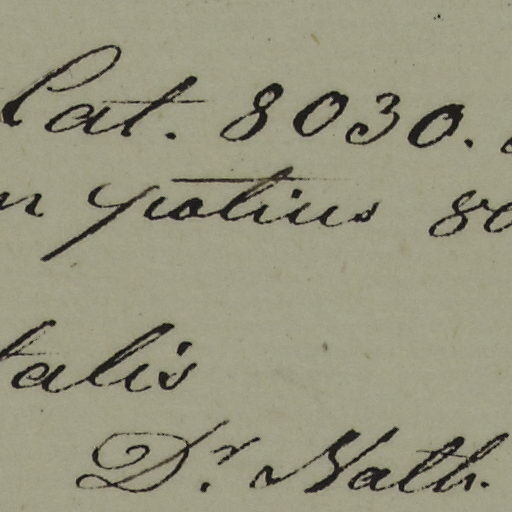 Cat. 8030.
n potius 80
talis
Dr. Nath.